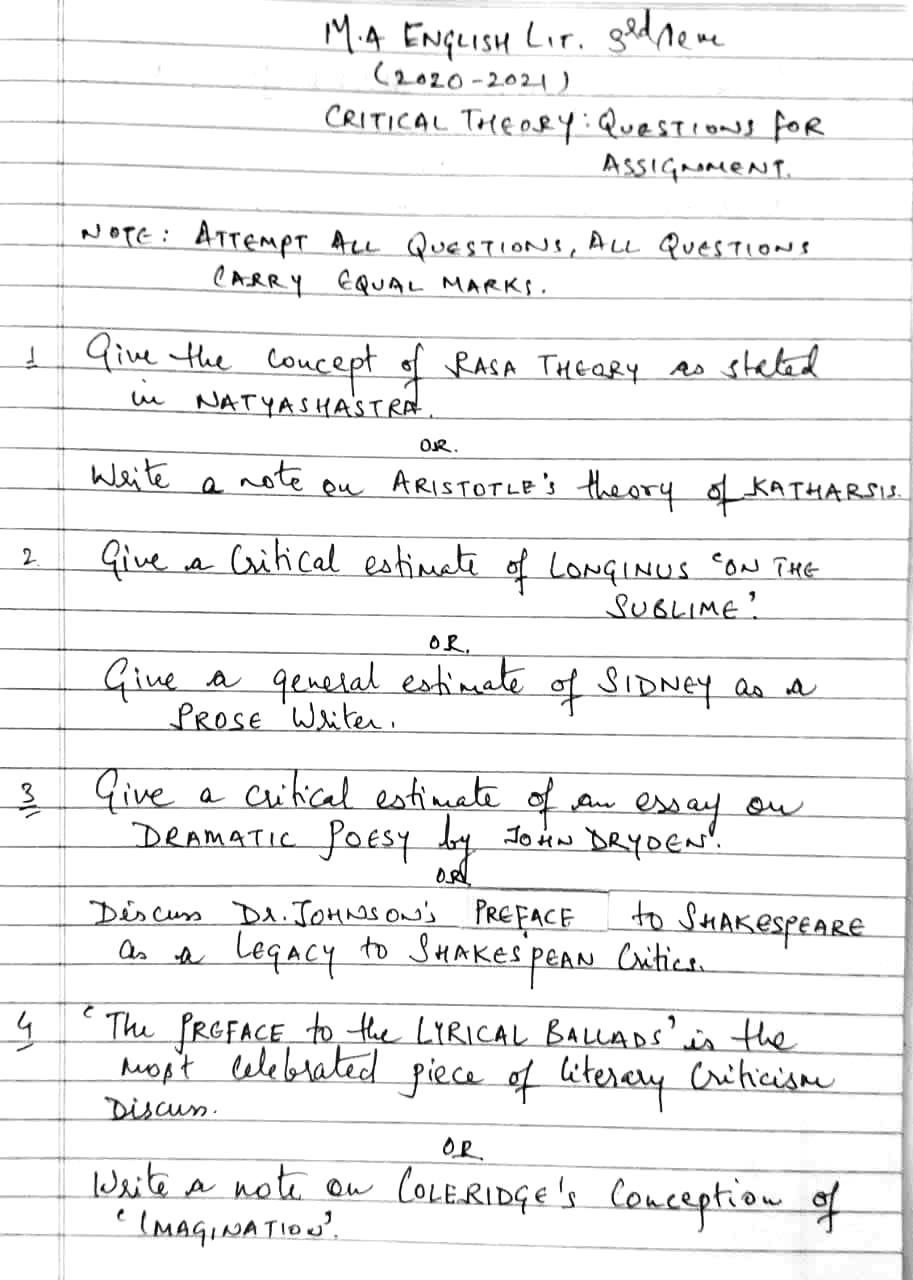 M.A ENGLISH LIT. 3rd Sem
(2020-2021)
CRITICAL THEORY: QUESTIONS FOR
ASSIGNMENT.
NOTE: ATTEMPT ALL QUESTIONS, ALL QUESTIONS
CARRY EQUAL MARKS.
1 Give the concept of RASA THEORY as stated
in NATYASHASTRA.
OR.
Write a note on ARISTOTLE'S theory of KATHARSIS.
2. Give a Critical estimate of LONGINUS 'ON THE
SUBLIME'.
OR.
Give a general estimate of SIDNEY as a
PROSE Writer.
3 Give a critical estimate of an essay on
DRAMATIC POESY by JOHN DRYDEN'.
OR
Discuss DR. JOHNSON'S PREFACE to SHAKESPEARE
as a LEGACY to SHAKES'PEAN Critics.
4 'The PREFACE to the LYRICAL BALLADS' is the
most celebrated piece of literary Criticism
Discuss.
OR
Write a note on COLERIDGE'S Conception of
'IMAGINATION'.